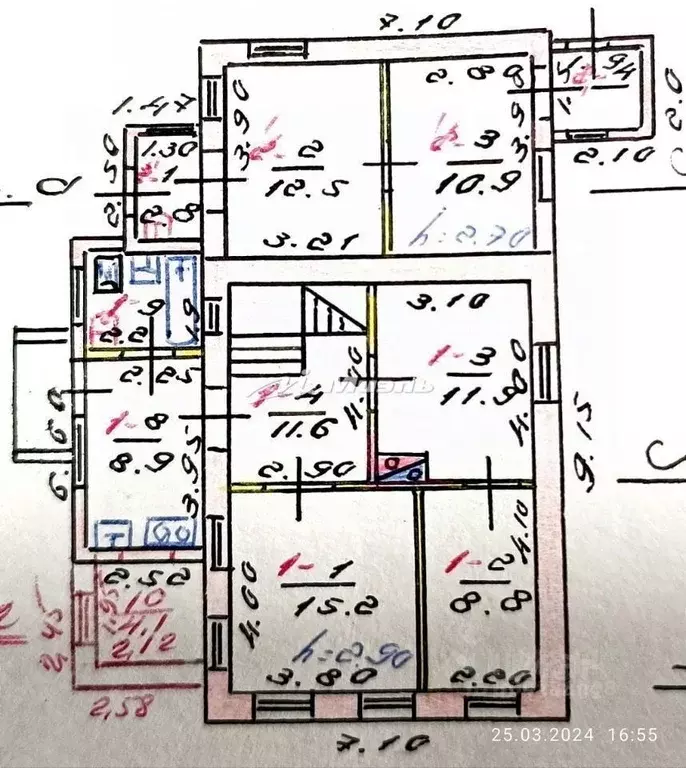 7.10
1.47
2.80
1.94
2.0
1.30
3.90
2
12.5
3
10.9
3.9
2.10
2.50
1
2.8
3.21
h=2.70
3.10
9
2.2
1.9
2.25
4
11.6
4.00
1-3
11.9
4.00
9.15
6.60
1-8
8.9
3.95
2.90
2.52
1-1
15.2
4.00
h=2.90
3.80
1-2
8.8
4.10
2.20
10
4.1
1.95
2.12
2.45
2,58
7.10
25.03.2024 16:55